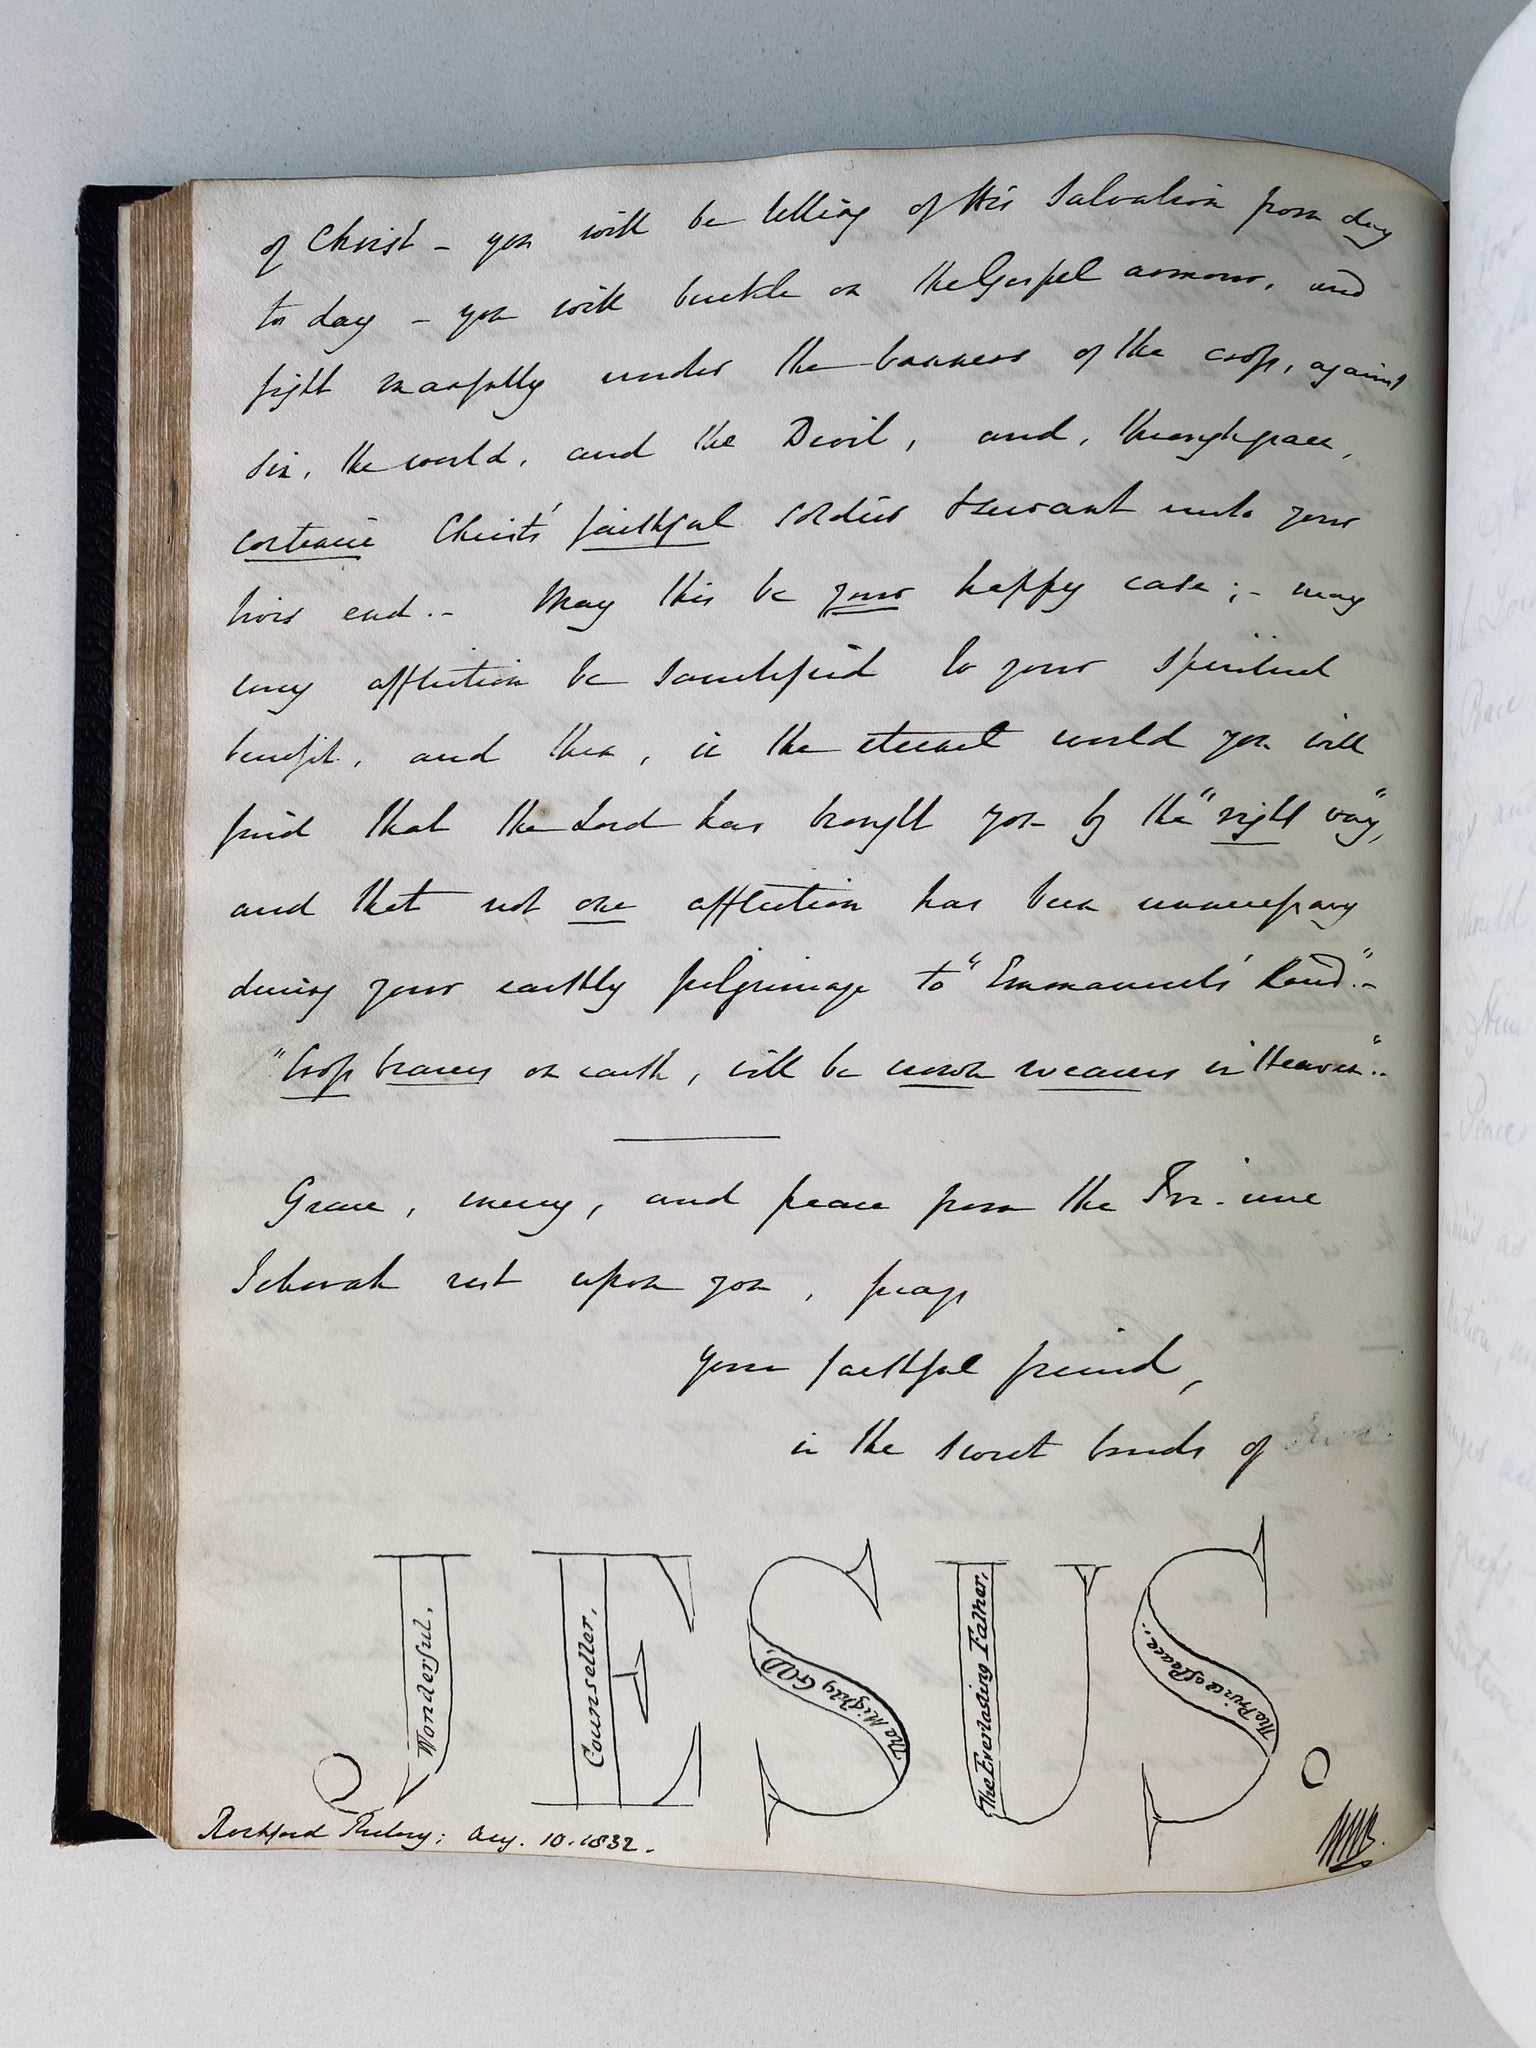 of Christ – you will be telling of His Salvation from day
to day – you will buckle on the Gospel armour, and
fight manfully under the banners of the cross, against
sin, the world, and the Devil, and, through grace,
continue Christs' faithful soldier & servant unto your
lives end. – May this be your happy case; – may
every affliction be sanctified to your spiritual
benefit, and then, in the eternal world you will
find that the Lord has brought you by the "right way",
and that not one affliction has been unnecessary
during your earthly pilgrimage to "Emmanuels' Land". –
"Cross bearers on earth, will be crown wearers in Heaven"..
Grace, mercy, and peace from the Tri-une
Jehovah rest upon you, prays
your faithful friend,
in the sweet bonds of
JESUS.
Wonderful,
Counseller,
The Mighty GOD,
The Everlasting Father,
The Prince of Peace..
Rectory; Aug. 10. 1832.